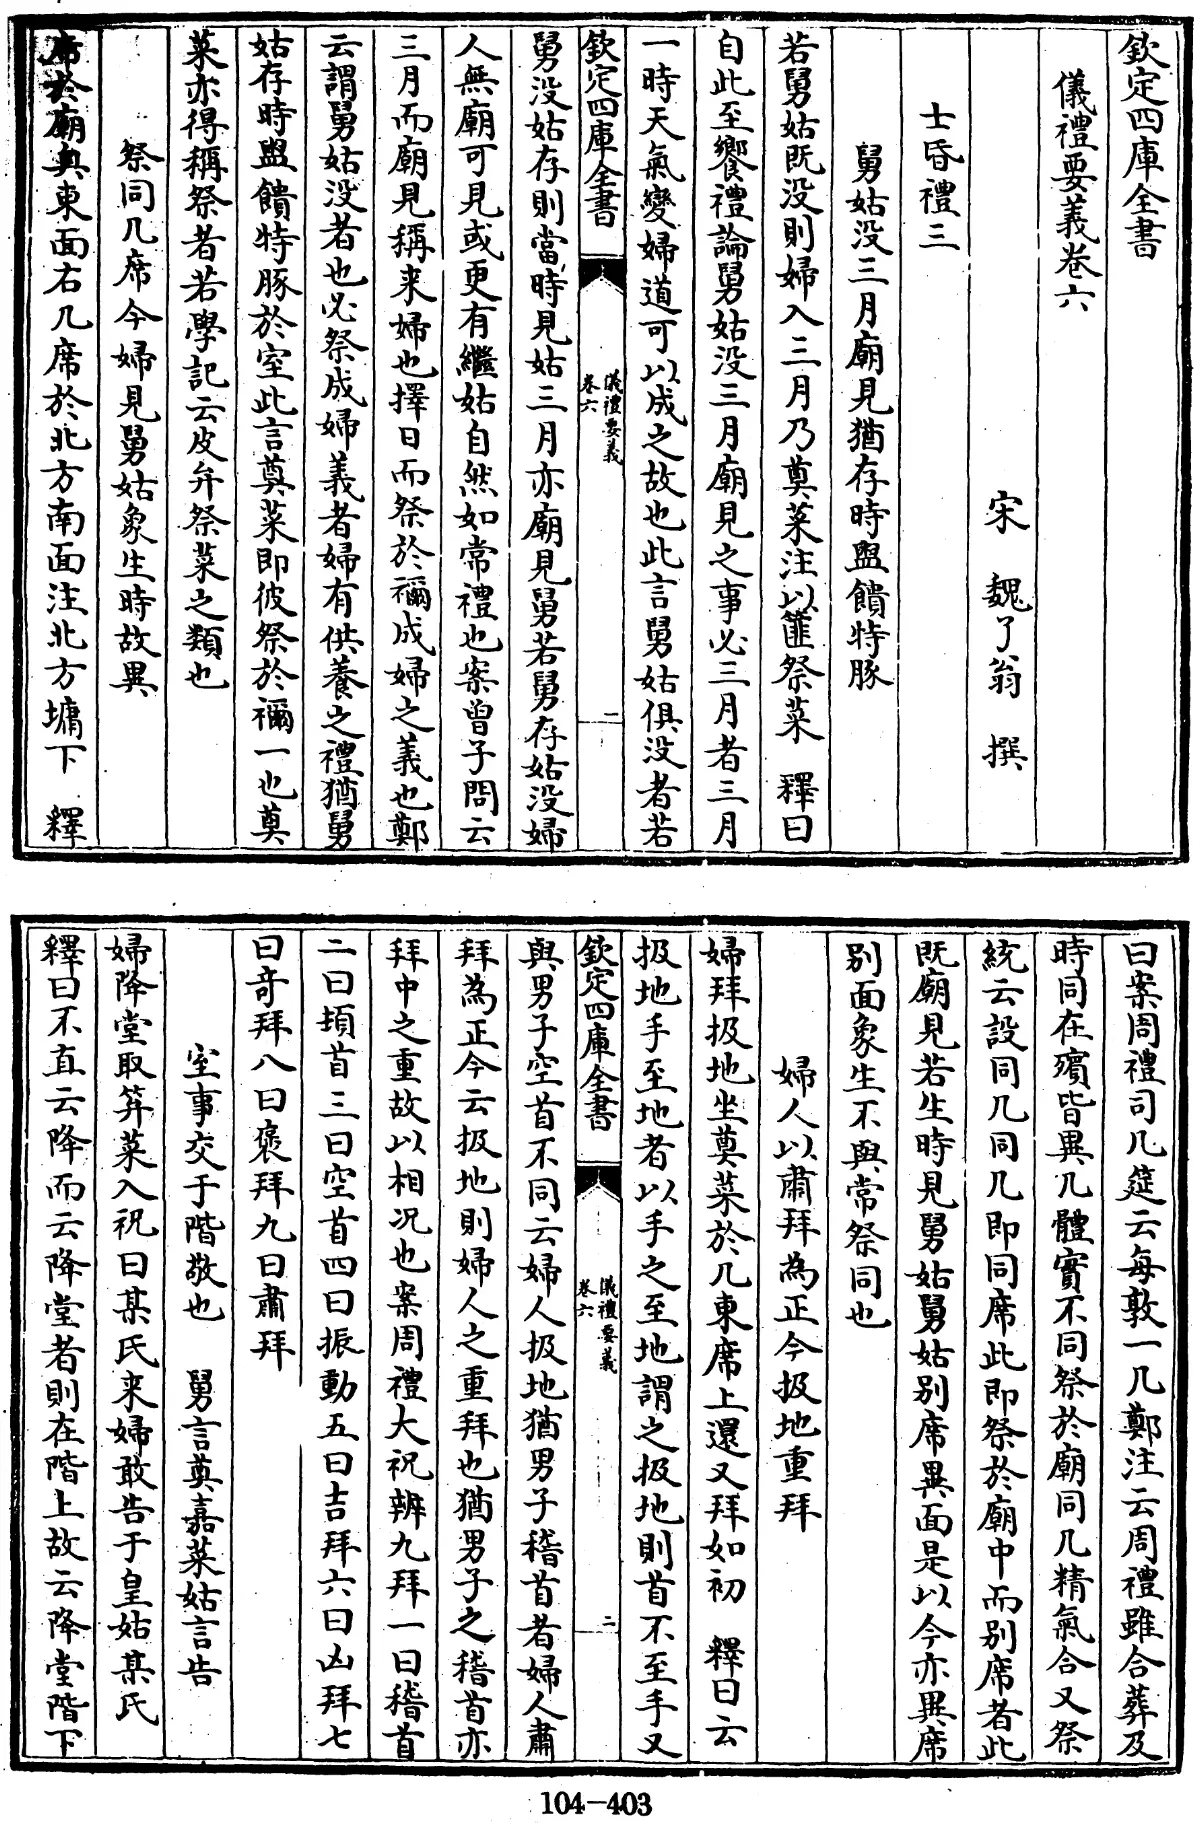 欽定四庫全書
儀禮要義卷六
宋　魏了翁　撰
士昏禮三
舅姑没三月廟見猶存時盥饋特豚
若舅姑既没則婦入三月乃奠菜注以篚祭菜　釋曰
自此至饗禮論舅姑没三月廟見之事必三月者三月
一時天氣變婦道可以成之故也此言舅姑俱没者若
欽定四庫全書
儀禮要義
卷六
一
舅没姑存則當時見姑三月亦廟見舅若舅存姑没婦
人無廟可見或更有繼姑自然如常禮也案曾子問云
三月而廟見稱来婦也擇日而祭於禰成婦之義也鄭
云謂舅姑没者也必祭成婦義者婦有供養之禮猶舅
姑存時盥饋特豚於室此言奠菜即彼祭於禰一也奠
菜亦得稱祭者若學記云皮弁祭菜之類也
祭同几席今婦見舅姑象生時故異
席於廟奥東面右几席於北方南面注北方墉下　釋
曰案周禮司几筵云每敦一几鄭注云周禮雖合葬及
時同在殯皆異几體實不同祭於廟同几精氣合又祭
統云設同几同几即同席此即祭於廟中而别席者此
既廟見若生時見舅姑舅姑别席異面是以今亦異席
别面象生不與常祭同也
婦人以肅拜為正今扱地重拜
婦拜扱地坐奠菜於几東席上還又拜如初　釋曰云
扱地手至地者以手之至地謂之扱地則首不至手又
欽定四庫全書
儀禮要義
卷六
二
與男子空首不同云婦人扱地猶男子稽首者婦人肅
拜為正今云扱地則婦人之重拜也猶男子之稽首亦
拜中之重故以相况也案周禮大祝辨九拜一曰稽首
二曰頓首三曰空首四曰振動五曰吉拜六曰凶拜七
曰奇拜八曰褒拜九曰肅拜
室事交于階敬也　舅言奠嘉菜姑言告
婦降堂取笲菜入祝曰某氏来婦敢告于皇姑某氏
釋曰不直云降而云降堂者則在階上故云降堂階下
104-403